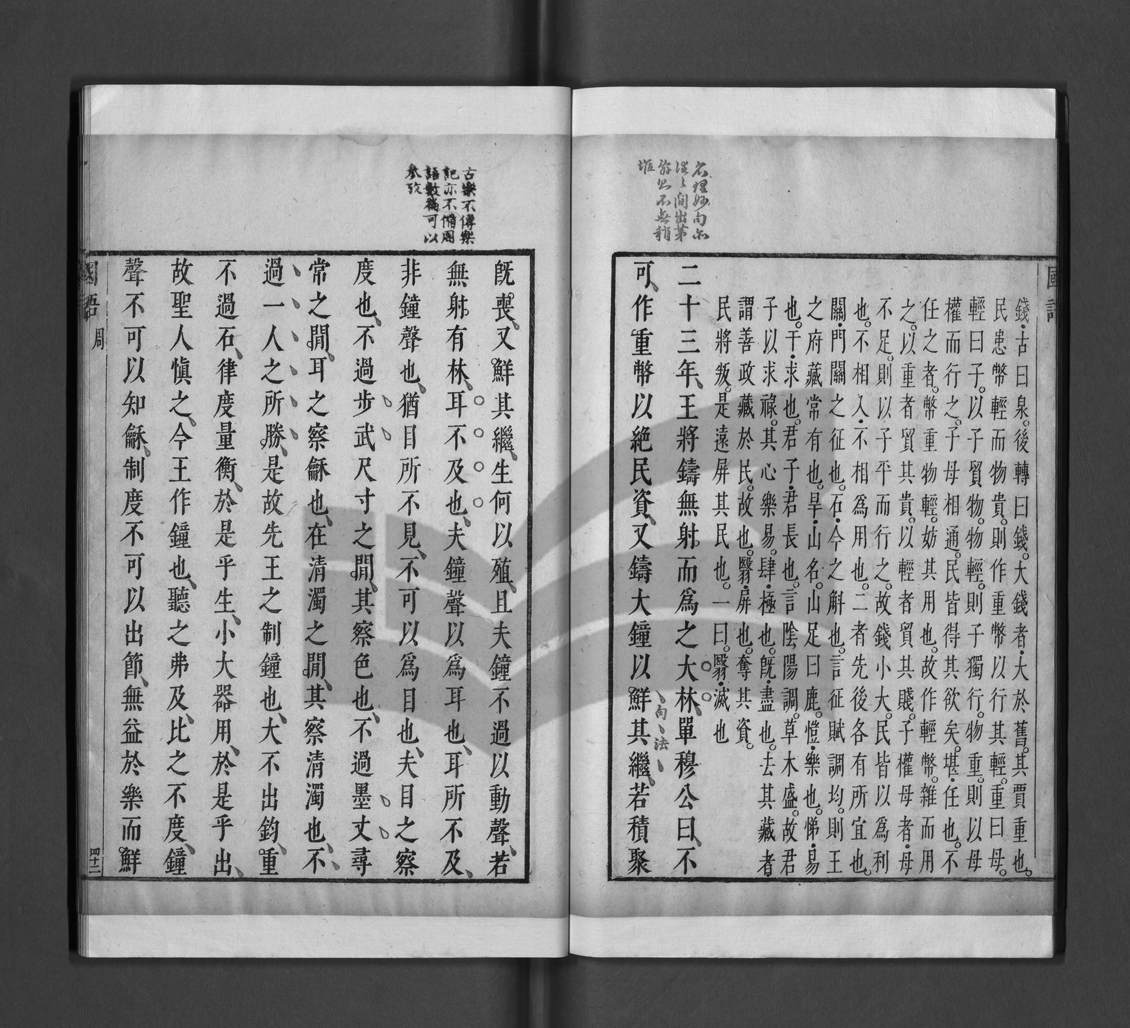 錢古曰泉後轉曰錢大錢者大於舊其賈重也
民患幣輕而物貴則作重幣以行其輕重曰母
輕曰子以子貿物物輕則子獨行物重則以母
權而行之子母相通民皆得其欲矣堪任也不
任之者幣重物輕妨其用也故作輕幣雜而用
之以重者貿其貴以輕者貿其賤子權母者母
不足則以子平而行之故錢小大民皆以為利
也不相入不相為用也二者先後各有所宜也
關門關之征也石今之斛也言征賦調均則王
之府藏常有也旱山名山足曰鹿愷樂也悌易
也干求也君子君長也言陰陽調草木盛故君
子以求祿其心樂易肆極也既盡也去其藏者
謂善政藏於民故也翳屏也奪其資
民將叛是遠屏其民也一曰翳滅也
二十三年王將鑄無射而為之大林單穆公曰不
可作重幣以絕民資又鑄大鐘以鮮其繼若積聚
句法
既喪又鮮其繼生何以殖且夫鐘不過以動聲若
無射有林耳不及也夫鐘聲以為耳也耳所不及
非鐘聲也猶目所不見不可以為目也夫目之察
度也不過步武尺寸之閒其察色也不過墨丈尋
常之閒耳之察龢也在清濁之閒其察清濁也不
過一人之所勝是故先王之制鐘也大不出鈞重
不過石律度量衡於是乎生小大器用於是乎出
故聖人慎之今王作鐘也聽之弗及比之不度鐘
聲不可以知龢制度不可以出節無益於樂而鮮
古樂不傳樂
記亦不備周
語數篇可以
參攷
國語
周
四十二